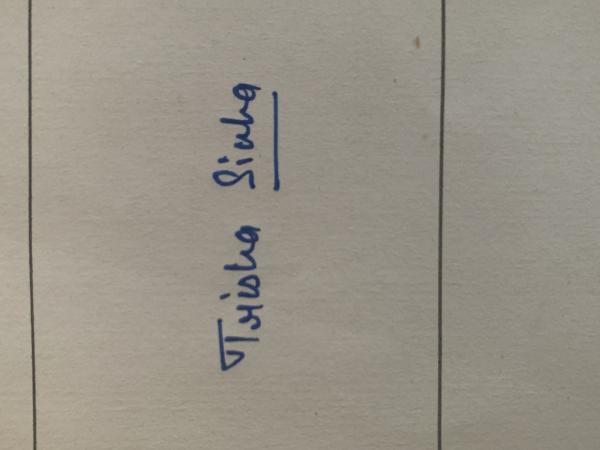 Trisha Sinha